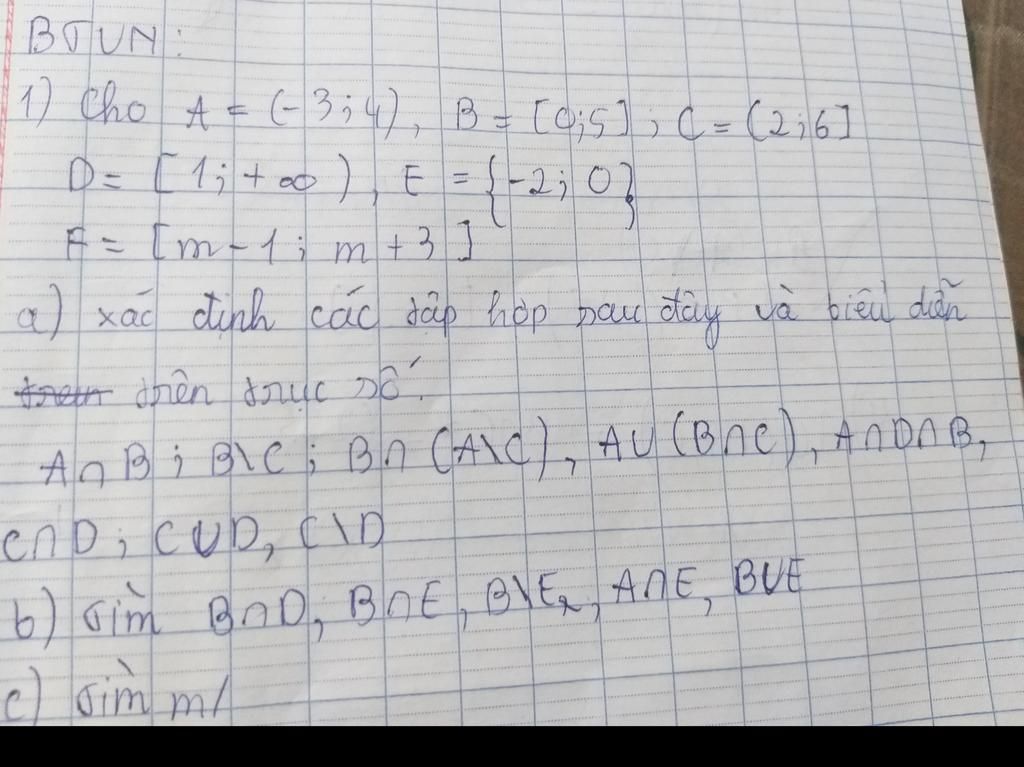 BTVN:
1) Cho A = (-3;4), B = [0;5]; C = (2;6]
D = [1; +∞), E = {-2; 0}
F = [m-1; m+3]
a) xác định các tập hợp sau đây và biểu diễn
trên trục số.
A∩B; B\C; B∩(A\C), A∪(B∩C), A∩D∩B,
C∩D; C∪D, C\D
b) Tìm B∩D, B∩E, B\E, A∩E, B∪E
c) Tìm m/